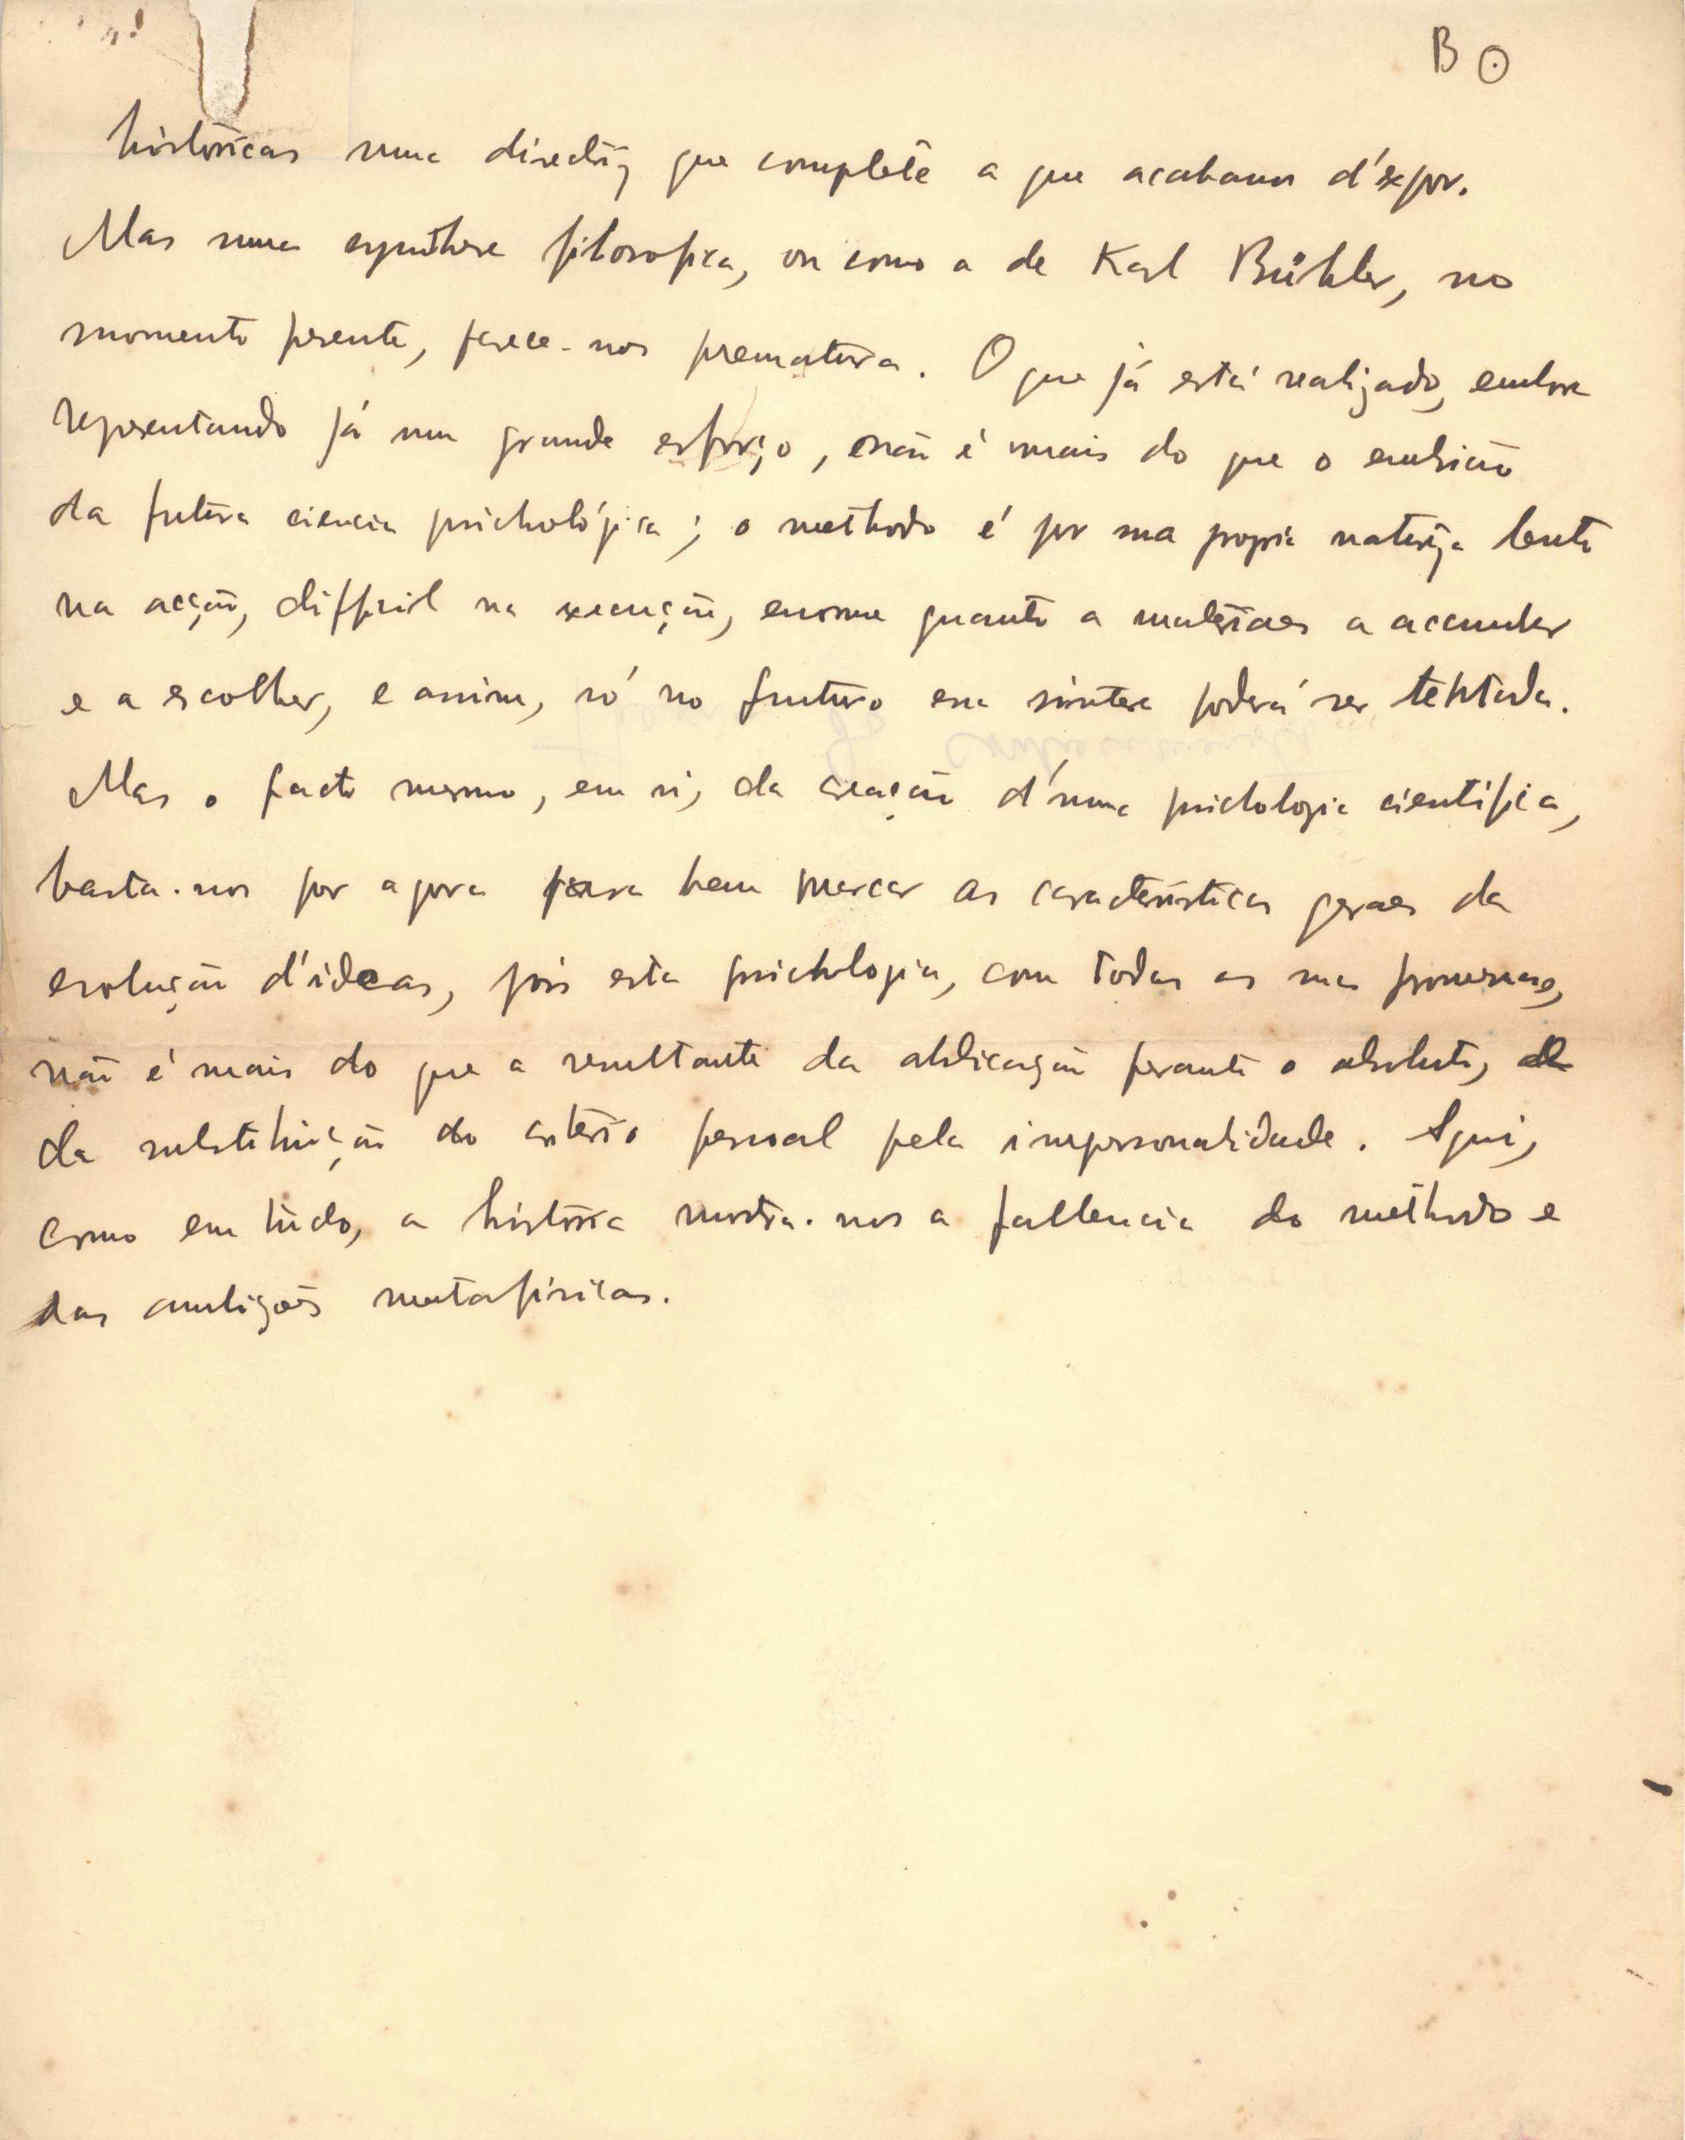 B ⊙
históricas uma directriz que complete a que acabamos d'expor.
Mas uma synthese filosofica, ou como a de Karl Bühler, no
momento presente, parece-nos prematura. O que já está realizado, embora
representando já um grande esforço, não é mais do que o embrião
da futura ciencia psichológica; o methodo é por sua propria natureza lento
na acção, difficil na execução, enorme quanto a materiaes a accumular
e a escolher, e assim, só no futuro essa sintese poderá ser tentada.
Mas o facto mesmo, em si, da creação d'uma psichologia cientifica,
basta-nos por agora para bem marcar as caracteristicas geraes da
evolução d'ideas, pois esta psichologia, com todas as suas promessas,
não é mais do que a resultante da abdicação perante o absoluto,
da substituição do criterio pessoal pela impersonalidade. Aqui,
como em tudo, a história mostra-nos a fallencia do methodo e
das ambições metafisicas.